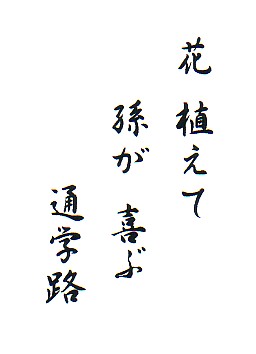 花 植えて
孫が 喜ぶ
通学路